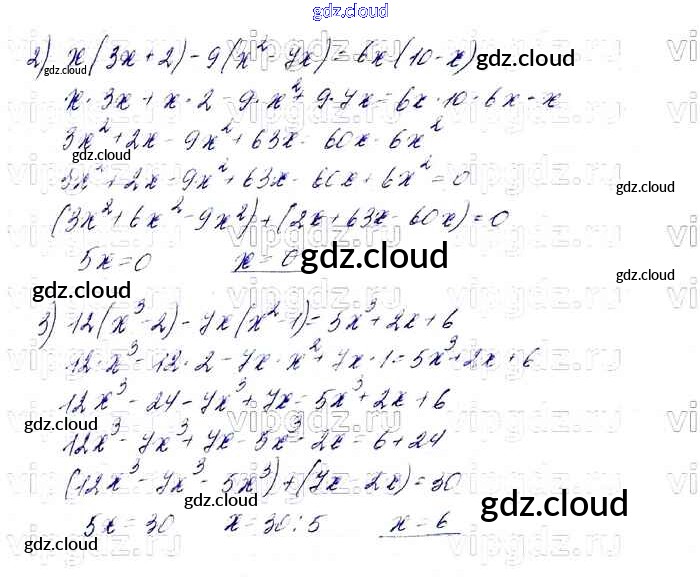 gdz.cloud
2) x(3x+2)-9(x²-7x)=6x(10-x) gdz.cloud
gdz.cloud
x·3x+x·2-9·x²+9·7x=6x·10-6x·x
3x²+2x-9x²+63x=60x-6x²
gdz.cloud
3x²+2x-9x²+63x-60x+6x²=0
gdz.cloud
(3x²+6x²-9x²)+(2x+63x-60x)=0
5x=0 x=0 gdz.cloud
gdz.cloud
gdz.cloud
3) 12(x³-2)-7x(x²-1)=5x³+2x+6
12·x³-12·2-7x·x²+7x·1=5x³+2x+6
12x³-24-7x³+7x=5x³+2x+6
gdz.cloud
gdz.cloud
12x³-7x³+7x-5x³-2x=6+24
(12x³-7x³-5x³)+(7x-2x)=30
gdz.cloud
gdz.cloud
5x=30 x=30:5 x=6
gdz.cloud
gdz.cloud